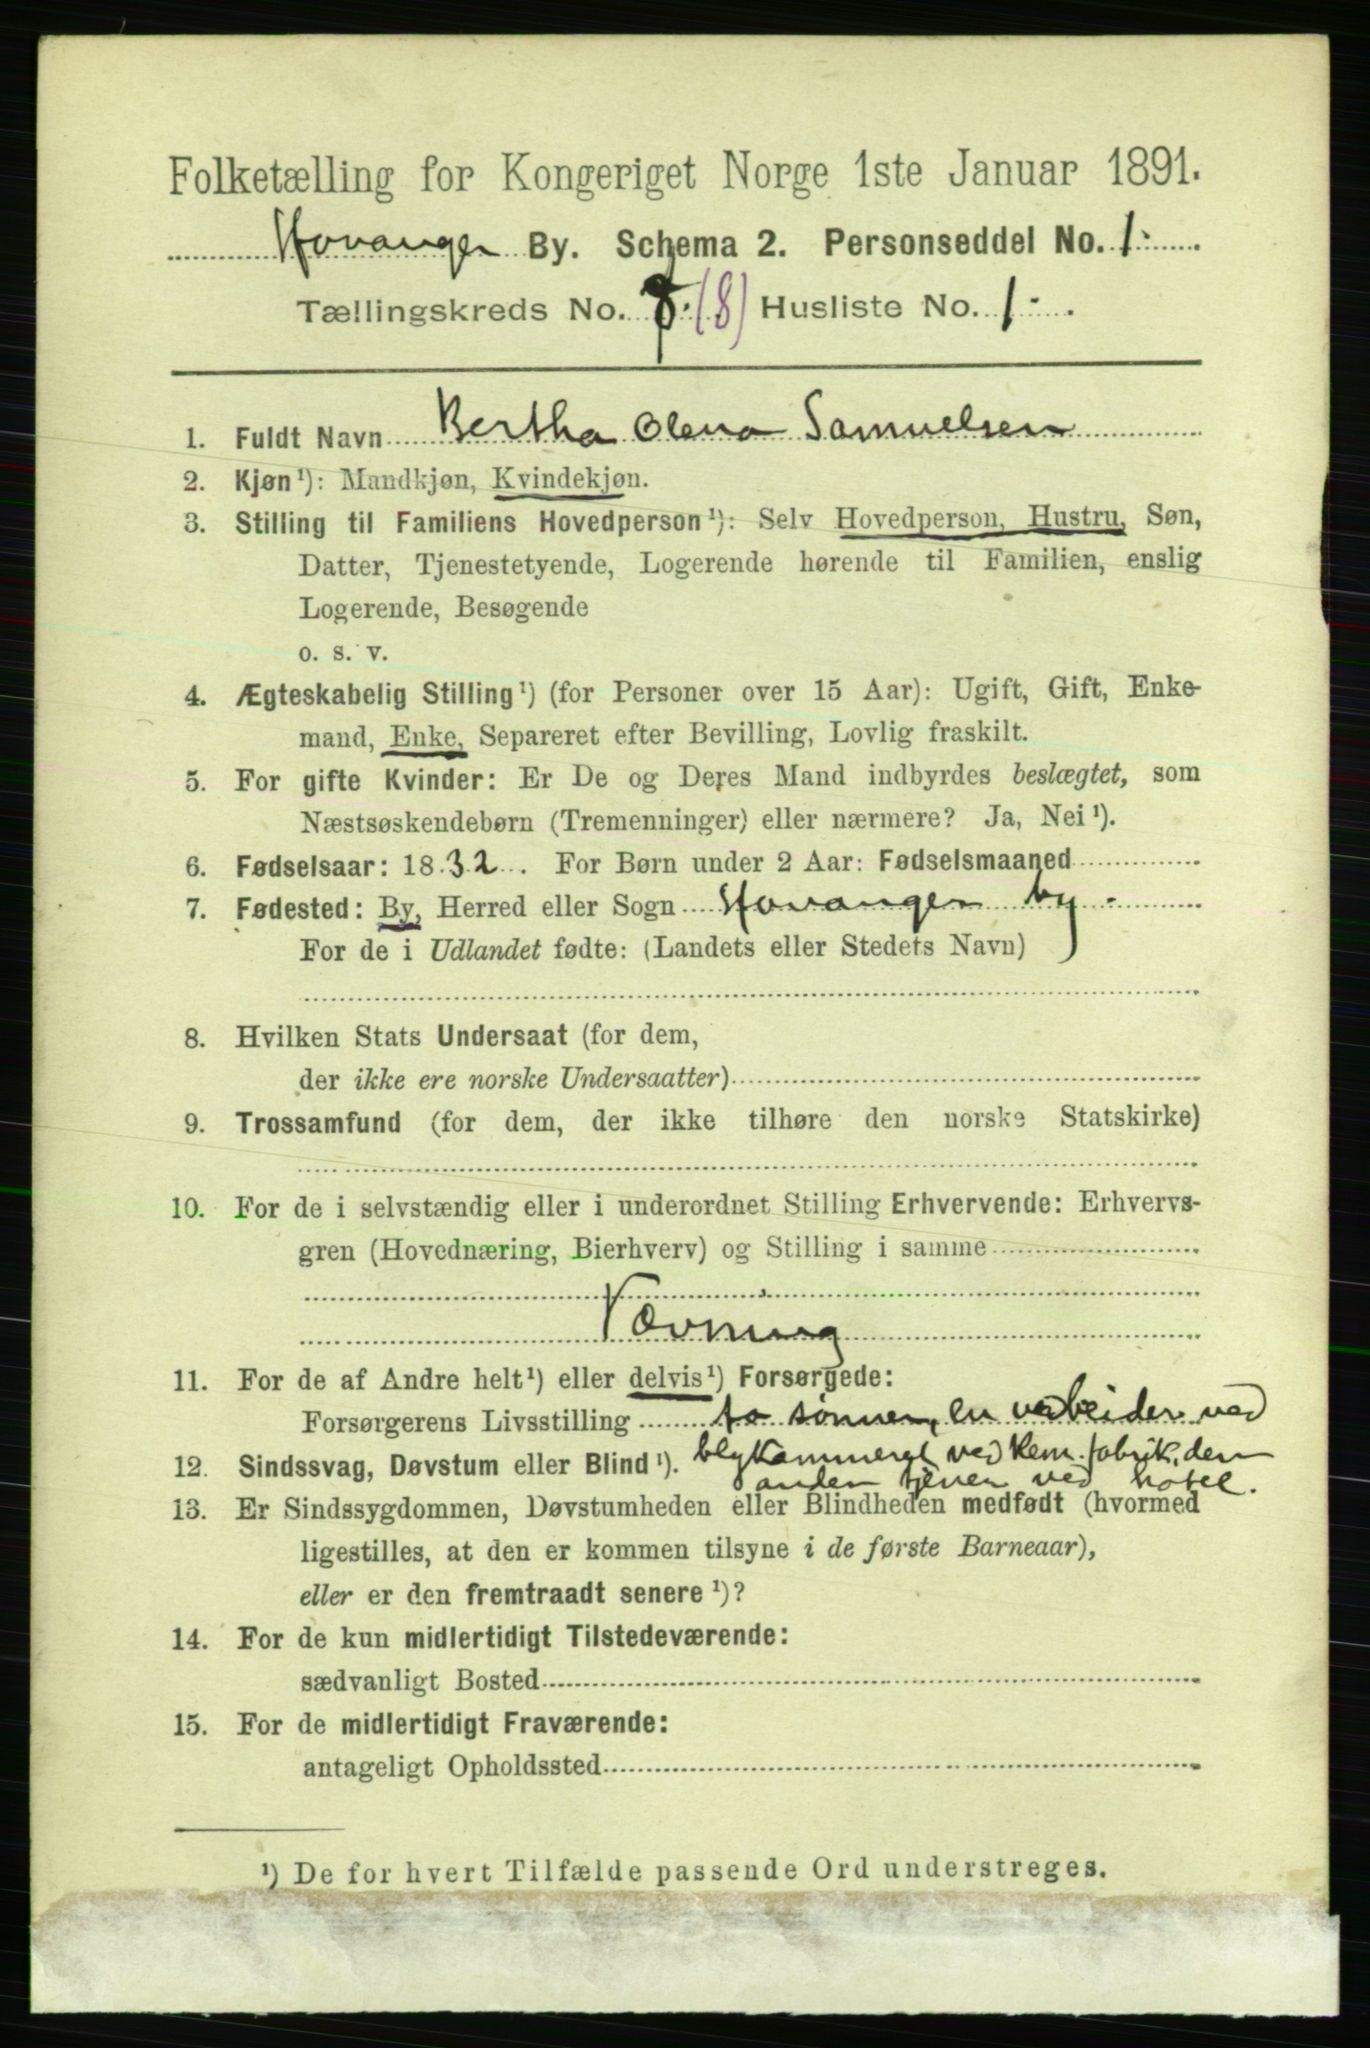 Folketælling for Kongeriget Norge 1ste Januar 1891.
Stavanger By. Schema 2. Personseddel No. 1.
Tællingskreds No. 8. (8) Husliste No. 1.
1. Fuldt Navn Bertha Olena Samuelsen
2. Kjøn¹): Mandkjøn, Kvindekjøn.
3. Stilling til Familiens Hovedperson¹): Selv Hovedperson, Hustru, Søn,
Datter, Tjenestetyende, Logerende hørende til Familien, enslig
Logerende, Besøgende
o. s. v.
4. Ægteskabelig Stilling¹) (for Personer over 15 Aar): Ugift, Gift, Enke-
mand, Enke, Separeret efter Bevilling, Lovlig fraskilt.
5. For gifte Kvinder: Er De og Deres Mand indbyrdes beslægtet, som
Næstsøskendebørn (Tremenninger) eller nærmere? Ja, Nei¹).
6. Fødselsaar: 1832. For Børn under 2 Aar: Fødselsmaaned
7. Fødested: By, Herred eller Sogn Stavanger by.
For de i Udlandet fødte: (Landets eller Stedets Navn)
8. Hvilken Stats Undersaat (for dem,
der ikke ere norske Undersaatter)
9. Trossamfund (for dem, der ikke tilhøre den norske Statskirke)
10. For de i selvstændig eller i underordnet Stilling Erhvervende: Erhvervs-
gren (Hovednæring, Bierhverv) og Stilling i samme
Vævning
11. For de af Andre helt¹) eller delvis¹) Forsørgede:
Forsørgerens Livsstilling to sønner, en arbeider ved
blykammeret ved kem. fabrik, den
12. Sindssvag, Døvstum eller Blind¹).
anden tjener ved hotel.
13. Er Sindssygdommen, Døvstumheden eller Blindheden medfødt (hvormed
ligestilles, at den er kommen tilsyne i de første Barneaar),
eller er den fremtraadt senere¹)?
14. For de kun midlertidigt Tilstedeværende:
sædvanligt Bosted
15. For de midlertidigt Fraværende:
antageligt Opholdssted
¹) De for hvert Tilfælde passende Ord understreges.